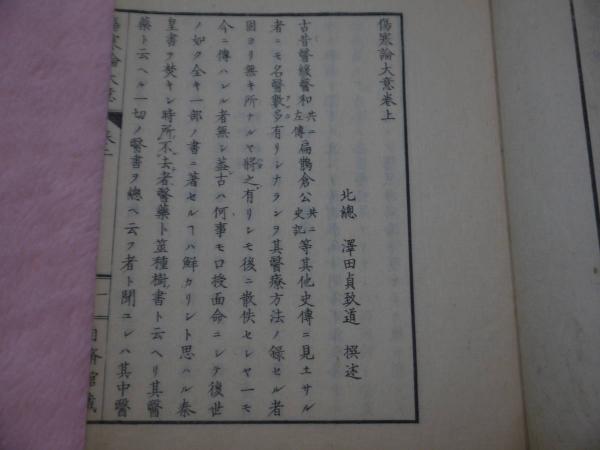 傷寒論大意卷上
北總 澤田貞致道 撰述
古昔醫緩醫和共ニ左傳扁鵲倉公共ニ史記等其他史傳ニ見エサル
者ニモ名醫數多有リシナランヲ其醫療方法ノ錄セル者
固ヨリ無キ所ナルヤ將之有リシモ後ニ散佚セレヤ一モ
今ニ傳ハレル者無シ蓋古ハ何事モ口授面命ニシテ後世
ノ如ク全キ一部ノ書ニ著セルヿハ鮮カリシト思ハル秦
皇書ヲ焚キシ時所不去者醫藥卜筮種樹書ト云ヘリ其醫
藥ト云ヘル一切ノ醫書ヲ總ヘ云フ者ト聞ユレハ其中醫
傷寒論大意 卷上 一